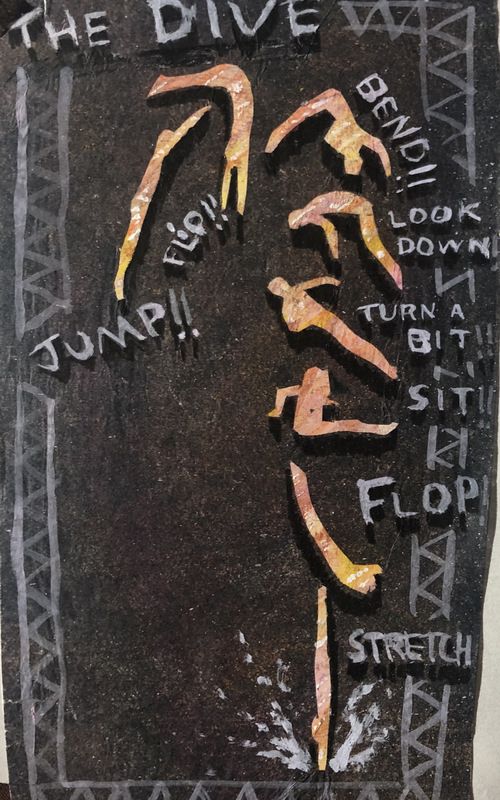 THE DIVE
JUMP!!
FLIP!!
BEND!!
LOOK
DOWN!
TURN A
BIT!!
SIT!!
FLOP!
STRETCH